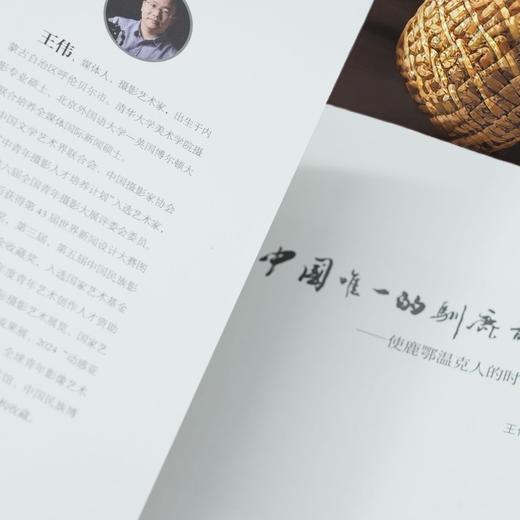 王伟，媒体人，摄影艺术家，出生于内
蒙古自治区呼伦贝尔市。清华大学美术学院摄
影专业硕士、北京外国语大学—英国博尔顿大
联合培养全媒体国际新闻硕士。
中国文学艺术界联合会、中国摄影家协会
中青年摄影人才培养计划”入选艺术家，
六届全国青年摄影大展评委会委员。
获得第 43 届世界新闻设计大赛图
奖，第三届、第五届中国民族影
会收藏奖，入选国家艺术基金
年度青年艺术创作人才资助
影摄影艺术展览、国家艺
成果展，2024 “动感亚
全球青年影像艺术
馆、中国民族博
构收藏。
中国唯一的驯鹿
——使鹿鄂温克人的时
王伟